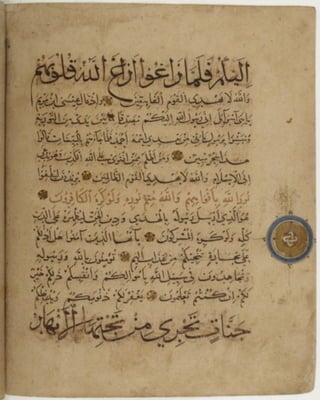 إليكم فلما زاغوا أزاغ الله قلوبهم
والله لا يهدي القوم الفاسقين وإذ قال عيسى ابن مريم
يا بني إسرائيل إني رسول الله إليكم مصدقا لما بين يدي من التورية
ومبشرا برسول يأتي من بعدي اسمه أحمد فلما جاءهم بالبينات قالوا
هذا سحر مبين ومن أظلم ممن افترى على الله الكذب وهو يدعى
إلى الإسلام والله لا يهدي القوم الظالمين يريدون ليطفؤا
نور الله بأفواههم والله متم نوره ولو كره الكافرون
هو الذي أرسل رسوله بالهدى ودين الحق ليظهره على الدين
كله ولو كره المشركون يا أيها الذين آمنوا هل أدلكم
على تجارة تنجيكم من عذاب أليم تؤمنون بالله ورسوله
وتجاهدون في سبيل الله بأموالكم وأنفسكم ذلكم خير
لكم إن كنتم تعلمون يغفر لكم ذنوبكم ويدخلكم
جنات تجري من تحتها الأنهار